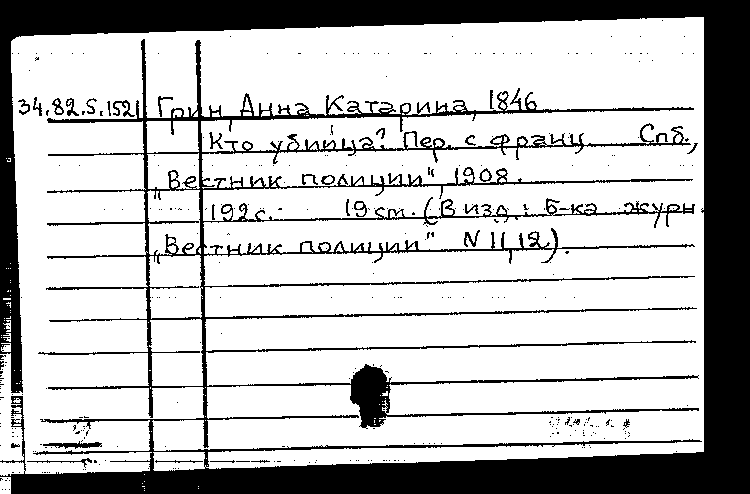 34.82.5.1521 Грин, Анна Катарина, 1846
Кто убийца? Пер. с франц. Спб.,
„Вестник полиции“, 1908.
192 с. 19 cm. (В изд.: Б-ка журн.
„Вестник полиции“ N 11,12).